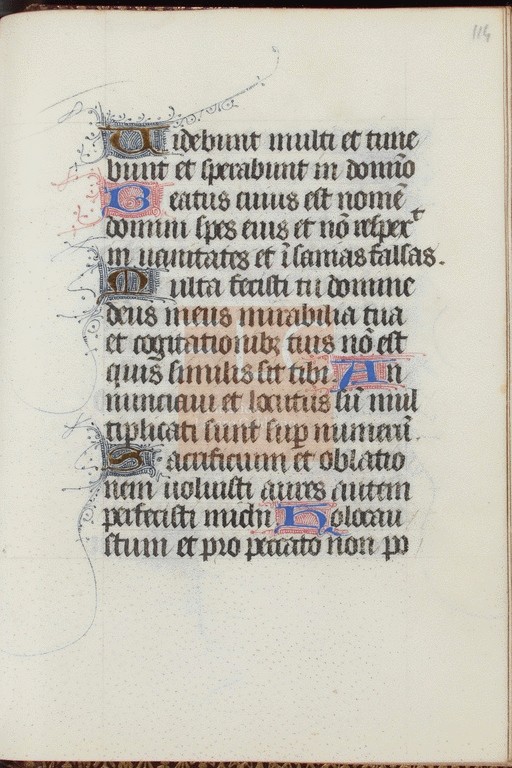 114
Uidebunt multi et time
bunt et sperabunt in domīo
Beatus cuius est nomē
domini spes eius et nō respexͭ
in uanitates et ī sanias falsas.
Multa fecisti tu domine
deus meus mirabilia tua
et cogitationibꝫ tuis nō est
quis similis sit tibi. An
nunciaui et locutus sū mul
tiplicati sunt suꝑ numerū.
Sacrificium et oblatio
nem noluisti aures autem
perfecisti michi Holocau
stum et pro peccato non po